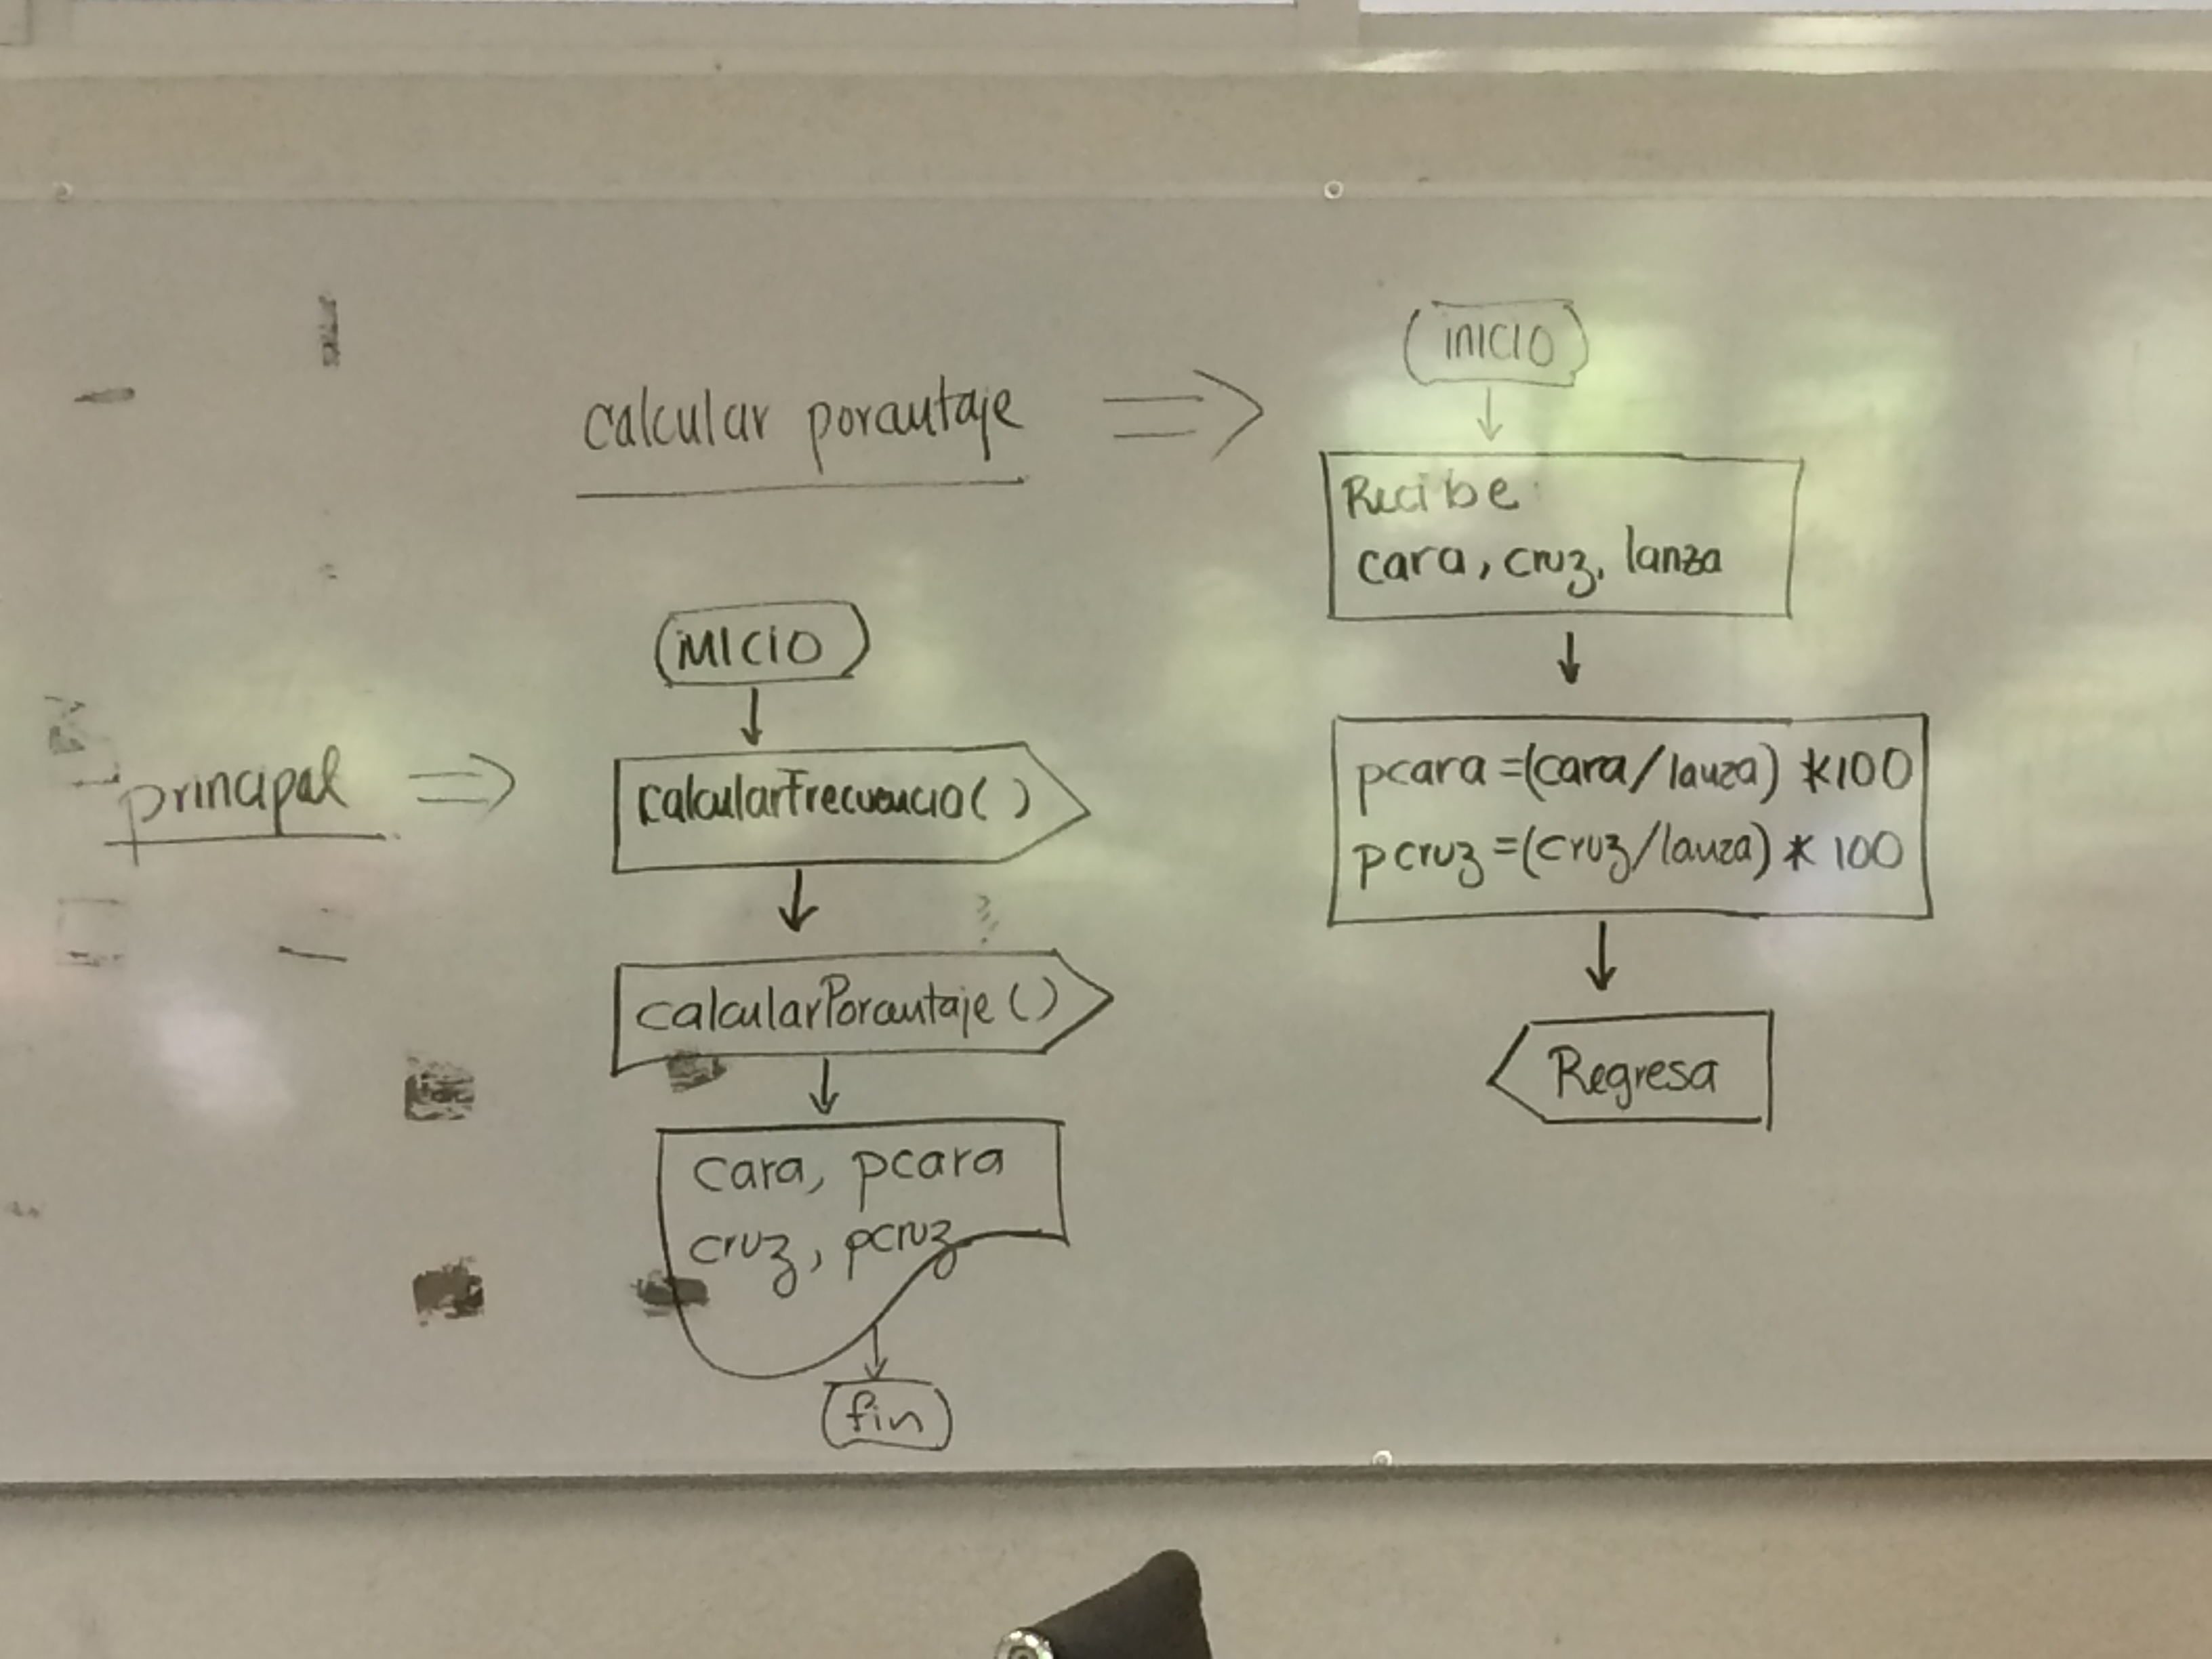 calcular porcentaje
inicio
Recibe:
cara, cruz, lanza
pcara=(cara/lanza) *100
pcruz=(cruz/lanza) * 100
Regresa
principal
inicio
calcularFrecuencia()
calcularPorcentaje()
cara, pcara
cruz, pcruz
fin